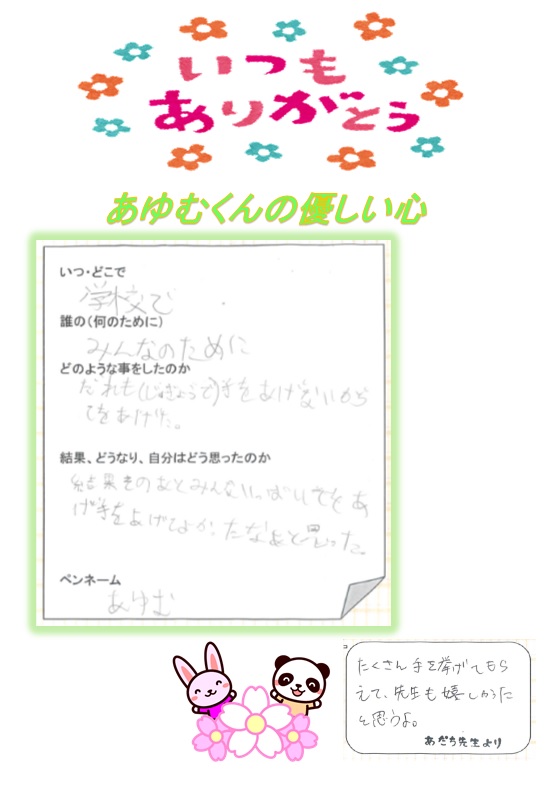 いつも
ありがとう
あゆむくんの優しい心
いつ・どこで
学校で
誰の(何のために)
みんなのために
どのような事をしたのか
だれも(じゅぎょうで)手をあげないから
てをあげた。
結果、どうなり、自分はどう思ったのか
結果そのあとみんないっぱいてをあ
げ手をあげてよかったなあと思った。
ペンネーム
あゆむ
たくさん手を挙げてもら
えて、先生も嬉しかった
と思うよ。
あだち先生より